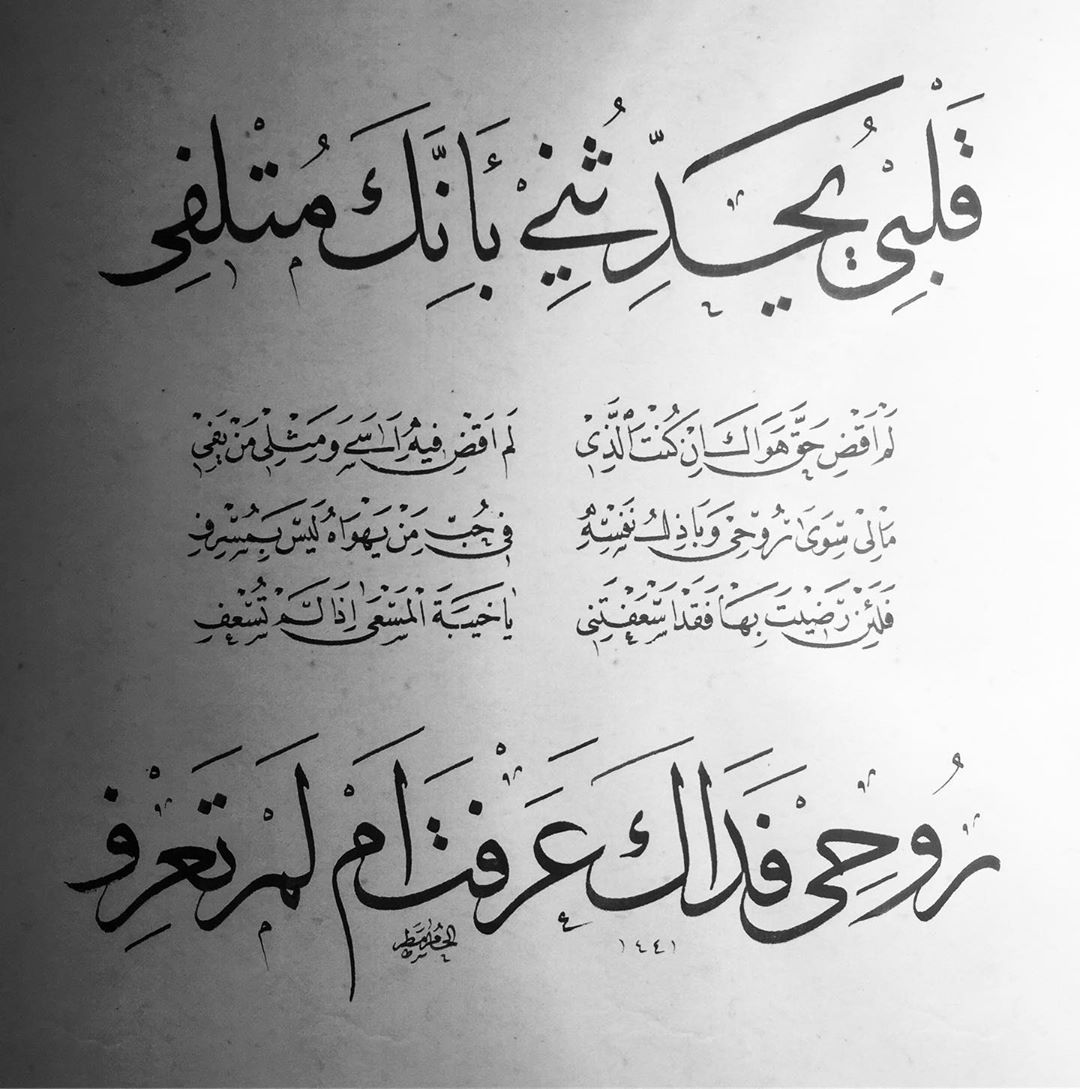 قَلْبِي يُحَدِّثُنِي بَأَنَّكَ مُتْلِفِي
لَمْ اَقْضِ حَقَّ هَوَاكَ اِنْ كُنْتَ الَّذِي لَم اَقضِ فيهِ اَسىً وَمِثْلِي مَنْ يَفِي
مَالِي سِوَى رُوْحِي وَبَاذِلُ نَفْسِهِ فِي حُبِّ مَنْ يَهْوَاهُ لَيْسَ بِمُسْرِفِ
فَلَئِنْ رَضِيْتَ بِهَا فَقَدْ اَسْعَفْتَنِي يَا خَيْبَةَ الْمَسْعَى اِذَا لَمْ تُسْعِفِ
رُوحِي فَدَاكَ عَرَفْتَ اَمْ لَمْ تَعْرِفِ
١٤٤١